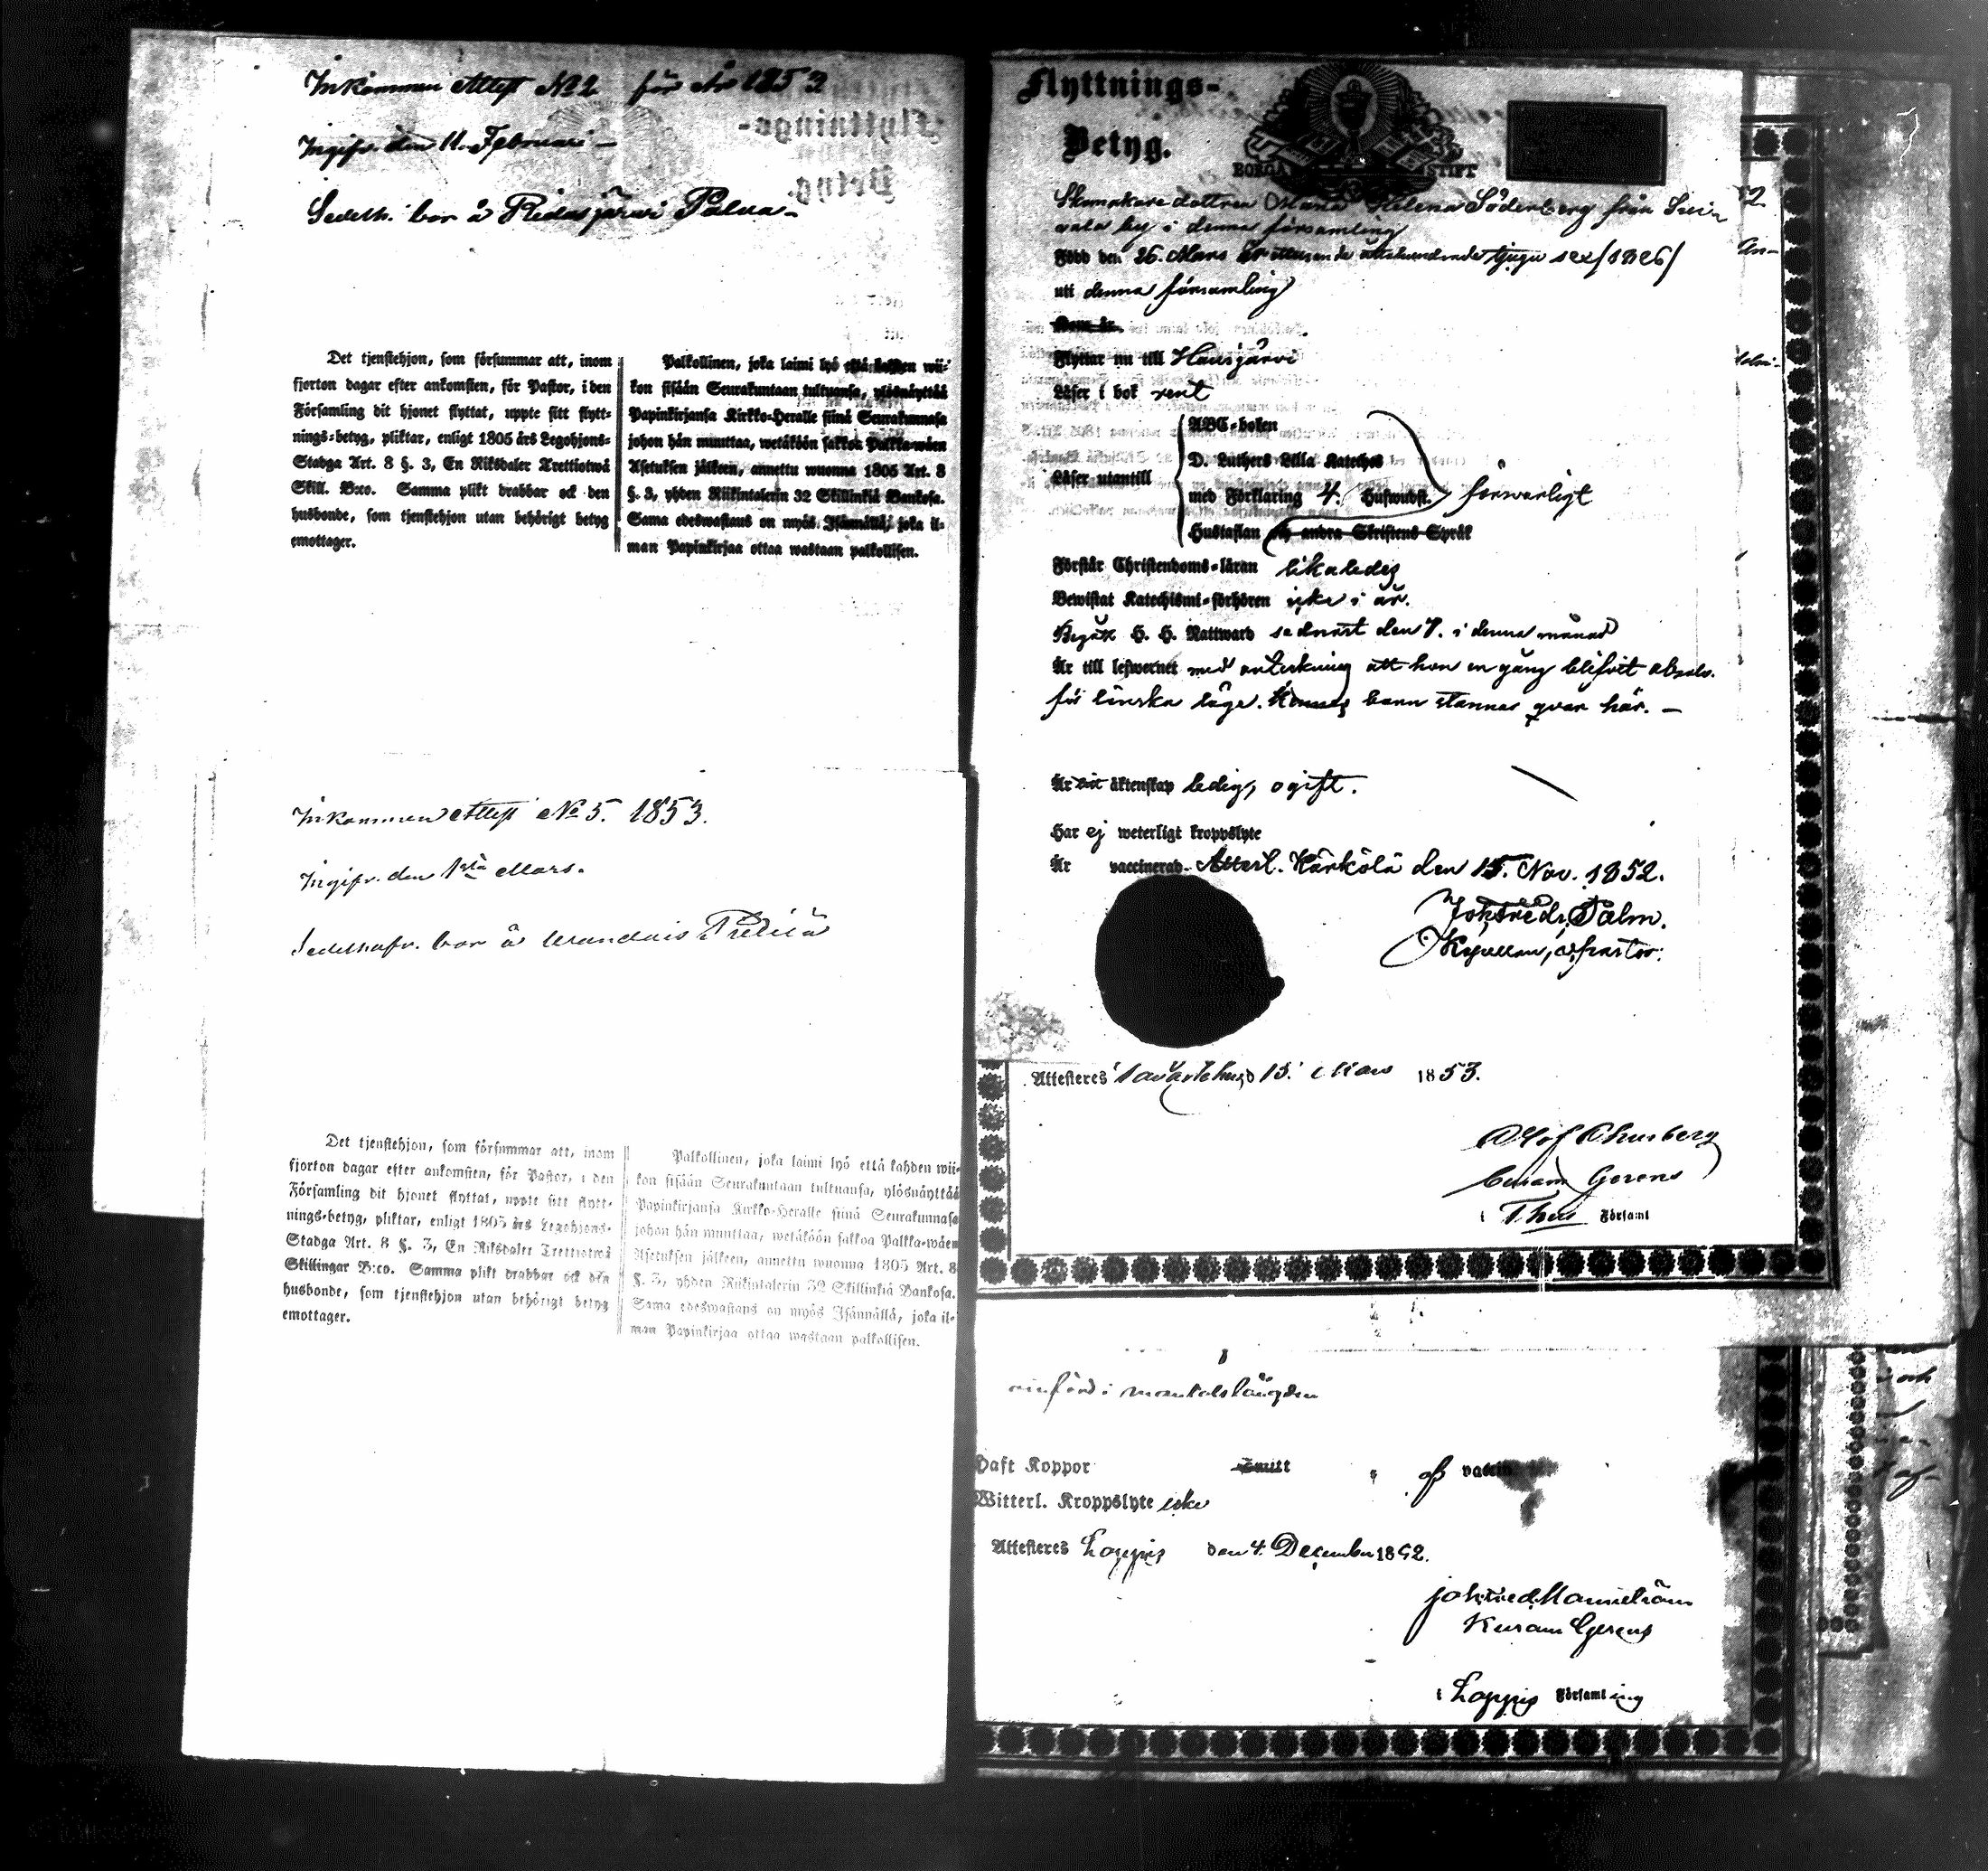 Inkommen Attest No 2 för År 1853
Ingifv. den 11 Februari –
Sedelh. bor å Ridasjärvi Palua –
Det tjenstehjon, som försummar att, inom
fjorton dagar efter ankomsten, för Pastor, i den
Församling dit hjonet flyttat, uppte sitt flytt-
nings-betyg, pliktar, enligt 1805 års Legohjons-
Stadga Art. 8 §. 3, En Riksdaler Trettiotwå
Skill. B:co. Samma plikt drabbar ock den
husbonde, som tjenstehjon utan behörigt betyg
emottager.
Palkollinen, joka laimi lyö että kahden wii-
kon sisään Seurakuntaan tultuansa, ylösnäyttää
Papinkirjansa Kirkko-Heralle siinä Seurakunnasa
johon hän muuttaa, wetäköön sakkoa Palkka-wäen
Asetuksen jälkeen, annettu wuonna 1805 Art. 8
§. 3, yhden Riikintalerin 32 Skillinkiä Bankosa.
Sama edeswastaus on myös Isännällä, joka il-
man Papinkirjaa ottaa wastaan palkollisen.
Inkommen Attest No 5. 1853.
Ingifv. den 1sta Mars.
Sedelhafv. bor å
Det tjenstehjon, som försummar att, inom
fjorton dagar efter ankomsten, för Pastor, i den
Församling dit hjonet flyttat, uppte sitt flytt-
nings-betyg, pliktar, enligt 1805 års Legohjons-
Stadga Art. 8 §. 3, En Riksdaler Trettiotwå
Skillingar B:co. Samma plikt drabbar ock den
husbonde, som tjenstehjon utan behörigt betyg
emottager.
Palkollinen, joka laimi lyö että kahden wii-
kon sisään Seurakuntaan tultuansa, ylösnäyttää
Papinkirjansa Kirkko-Heralle siinä Seurakunnasa
johon hän muuttaa, wetäköön sakkoa Palkka-wäen
Asetuksen jälkeen, annettu wuonna 1805 Art. 8
§. 3, yhden Riikintalerin 32 Skillinkiä Bankosa.
Sama edeswastaus on myös Isännällä, joka il-
man Papinkirjaa ottaa wastaan palkollisen.
Flyttnings-
Betyg.
BORGÅ STIFT
Skomakare dottren Maria Helena Söderberg från
by i denna församling
Född den 26. Mars År ettusende åttahundrade tjugu sex /1826/
uti denna församling
Flyttar nu till Hausjärvi
Läser i bok rent
Läser utantill
ABC-boken
D. Luthers Lilla Kateches
med Förklaring 4. Hufwudst.
Hustaflan och andra Skriftens Språk
försvarligt
Förstår Christendoms-läran likaledes
Bewistat Katechismi-förhören icke i år.
Begått H. H. Nattward sednast den 7. i denna månad
Är till lefwernet med anteckning att hon en gång blifvit absolv.
för lönska läge. Hennes barn stannar qvar här. –
Är äktenskap ledig, ogift.
Har ej weterligt kroppslyte
Är vaccinerad. Atterl. Kärkölä den 15. Nov. 1852.
Joh. Fredr. Palm.
Kapellan, v. pastor.
Attesteres Tavastehus d 15. Mars 1853.
Curam Gerens
i Församl
införd i mantalslängden
Haft Koppor
Witterl. Kroppslyte icke
Attesteres Loppis den 4. December 1852.
Kuram Gerens
i Loppis Församling